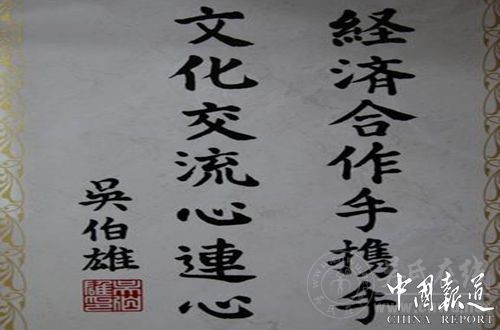 経済合作手携手
文化交流心連心
吳伯雄
中国報道
CHINA REPORT